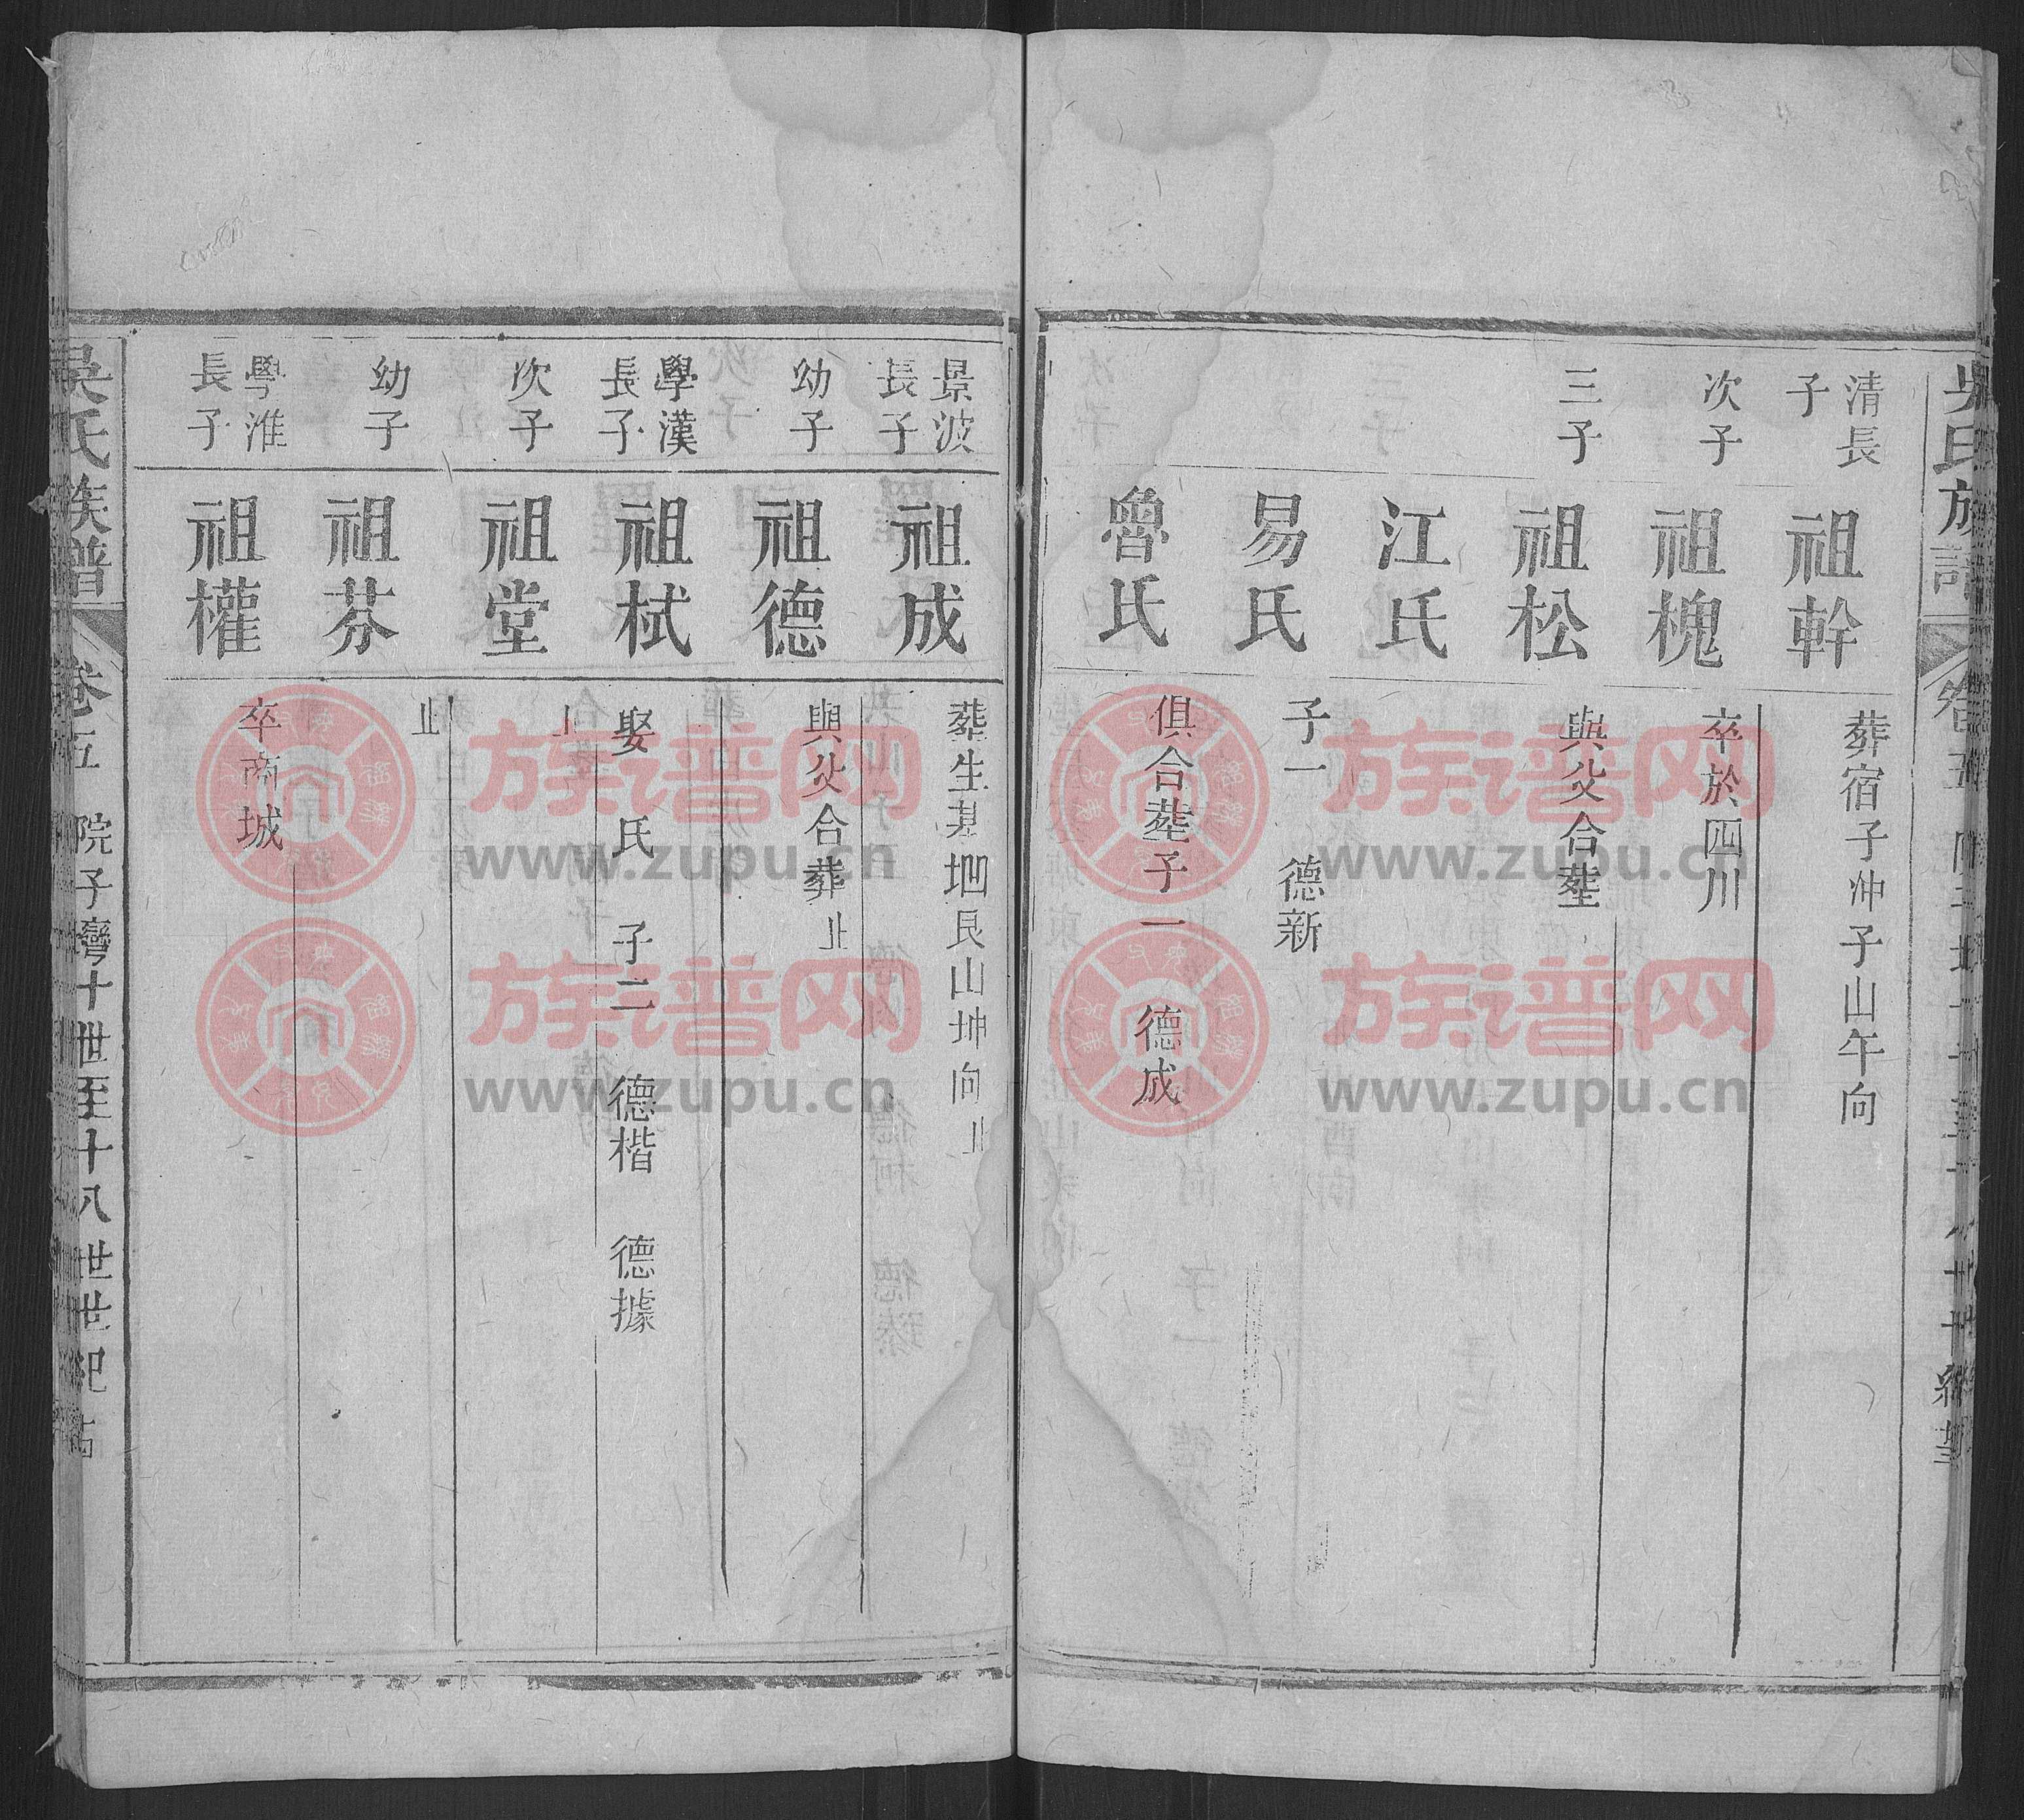 清長子
祖幹
葬宿子冲子山午向
次子
祖槐
卒於四川
三子
祖松
與父合塟
江氏
易氏
子一 德新
魯氏
俱合塟子一 德成
景波長子
祖成
葬生基坳艮山坤向止
幼子
祖德
與父合葬止
學漢長子
祖栻
娶 氏 子二 德楷 德據
次子
祖堂
止
幼子
祖芬
止
學淮長子
祖權
卒商城
吳氏族譜 卷五 院子灣十世至十八世世紀
族谱网
www.zupu.cn
族谱网
www.zupu.cn
族谱网
www.zupu.cn
族谱网
www.zupu.cn